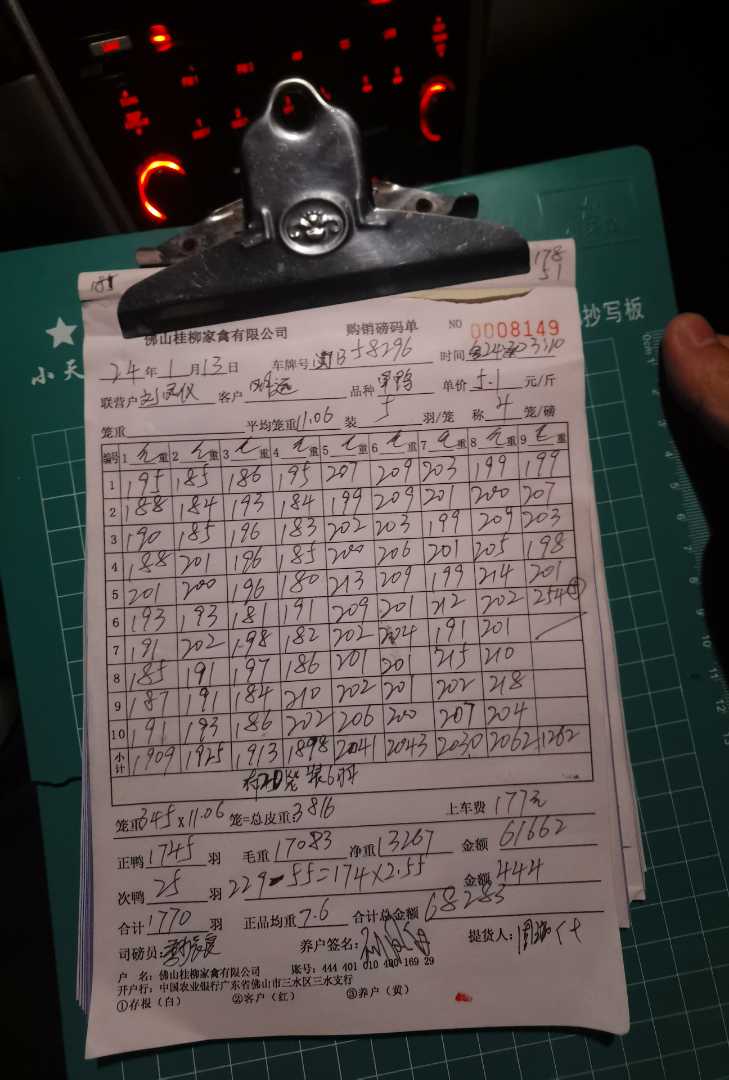 185
178
51
小天
抄写板
佛山桂柳家禽有限公司 购销磅码单 NO 0008149
24年1月13日 车牌号 B58296 时间
联营户 刘凤仪 客户 品种 单价 5.1 元/斤
笼重 平均笼重 11.06 装 5 羽/笼 称 4 笼/磅
编号 1 毛重 2 毛重 3 毛重 4 毛重 5 毛重 6 毛重 7 毛重 8 毛重 9 毛重
1 195 185 186 195 207 209 203 199 199
2 188 184 193 184 199 209 201 200 207
3 190 185 196 183 202 203 199 209 203
4 188 201 196 185 200 206 201 205 198
5 201 200 196 180 213 209 199 214 201
6 193 193 181 191 209 201 212 202 254
7 191 202 198 182 202 204 191 201
8 185 191 197 186 201 201 215 210
9 187 191 184 210 202 201 202 218
10 191 193 186 202 206 200 207 204
小计 1909 1925 1913 1898 2041 2043 2030 2062 1262
有20笼装6只
笼重 345×11.06 笼=总皮重 3816 上车费 177元
正鸭 1745 羽 毛重 17083 净重 13267 金额 61662
次鸭 25 羽 229-55=174×2.55 金额 444
合计 1770 羽 正品均重 7.6 合计总金额 68283
司磅员: 养户签名: 提货人:
户 名: 佛山桂柳家禽有限公司 账号: 444 401 010 400 169 29
开户行: 中国农业银行广东省佛山市三水区三水支行
①存报(白) ②客户(红) ③养户(黄)